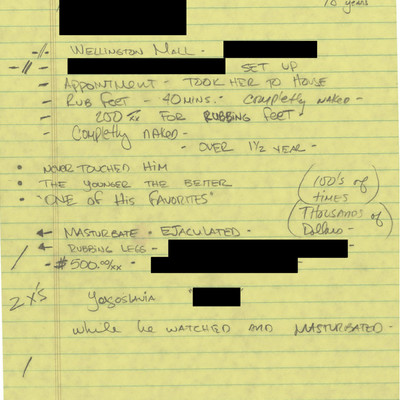 10 years
-//- WELLINGTON MALL -
-//- SET UP
- APPOINTMENT - TOOK HER TO HOUSE
- RUB FEET - 40 MINS. - COMPLETLY NAKED -
- 200 xx FOR RUBBING FEET
- COMPLETLY NAKED -
- OVER 1 1/2 YEAR -
• NEVER TOUCHED HIM
• THE YOUNGER THE BETTER
• "ONE OF HIS FAVORITES"
(100'S of TIMES
THOUSANDS of Dollars -)
← MASTURBATE - EJACULATED -
← RUBBING LEGS -
/ - $500.00/xx -
2 X'S Yogoslavia "
while he WATCHED AND MASTURBATED -
/